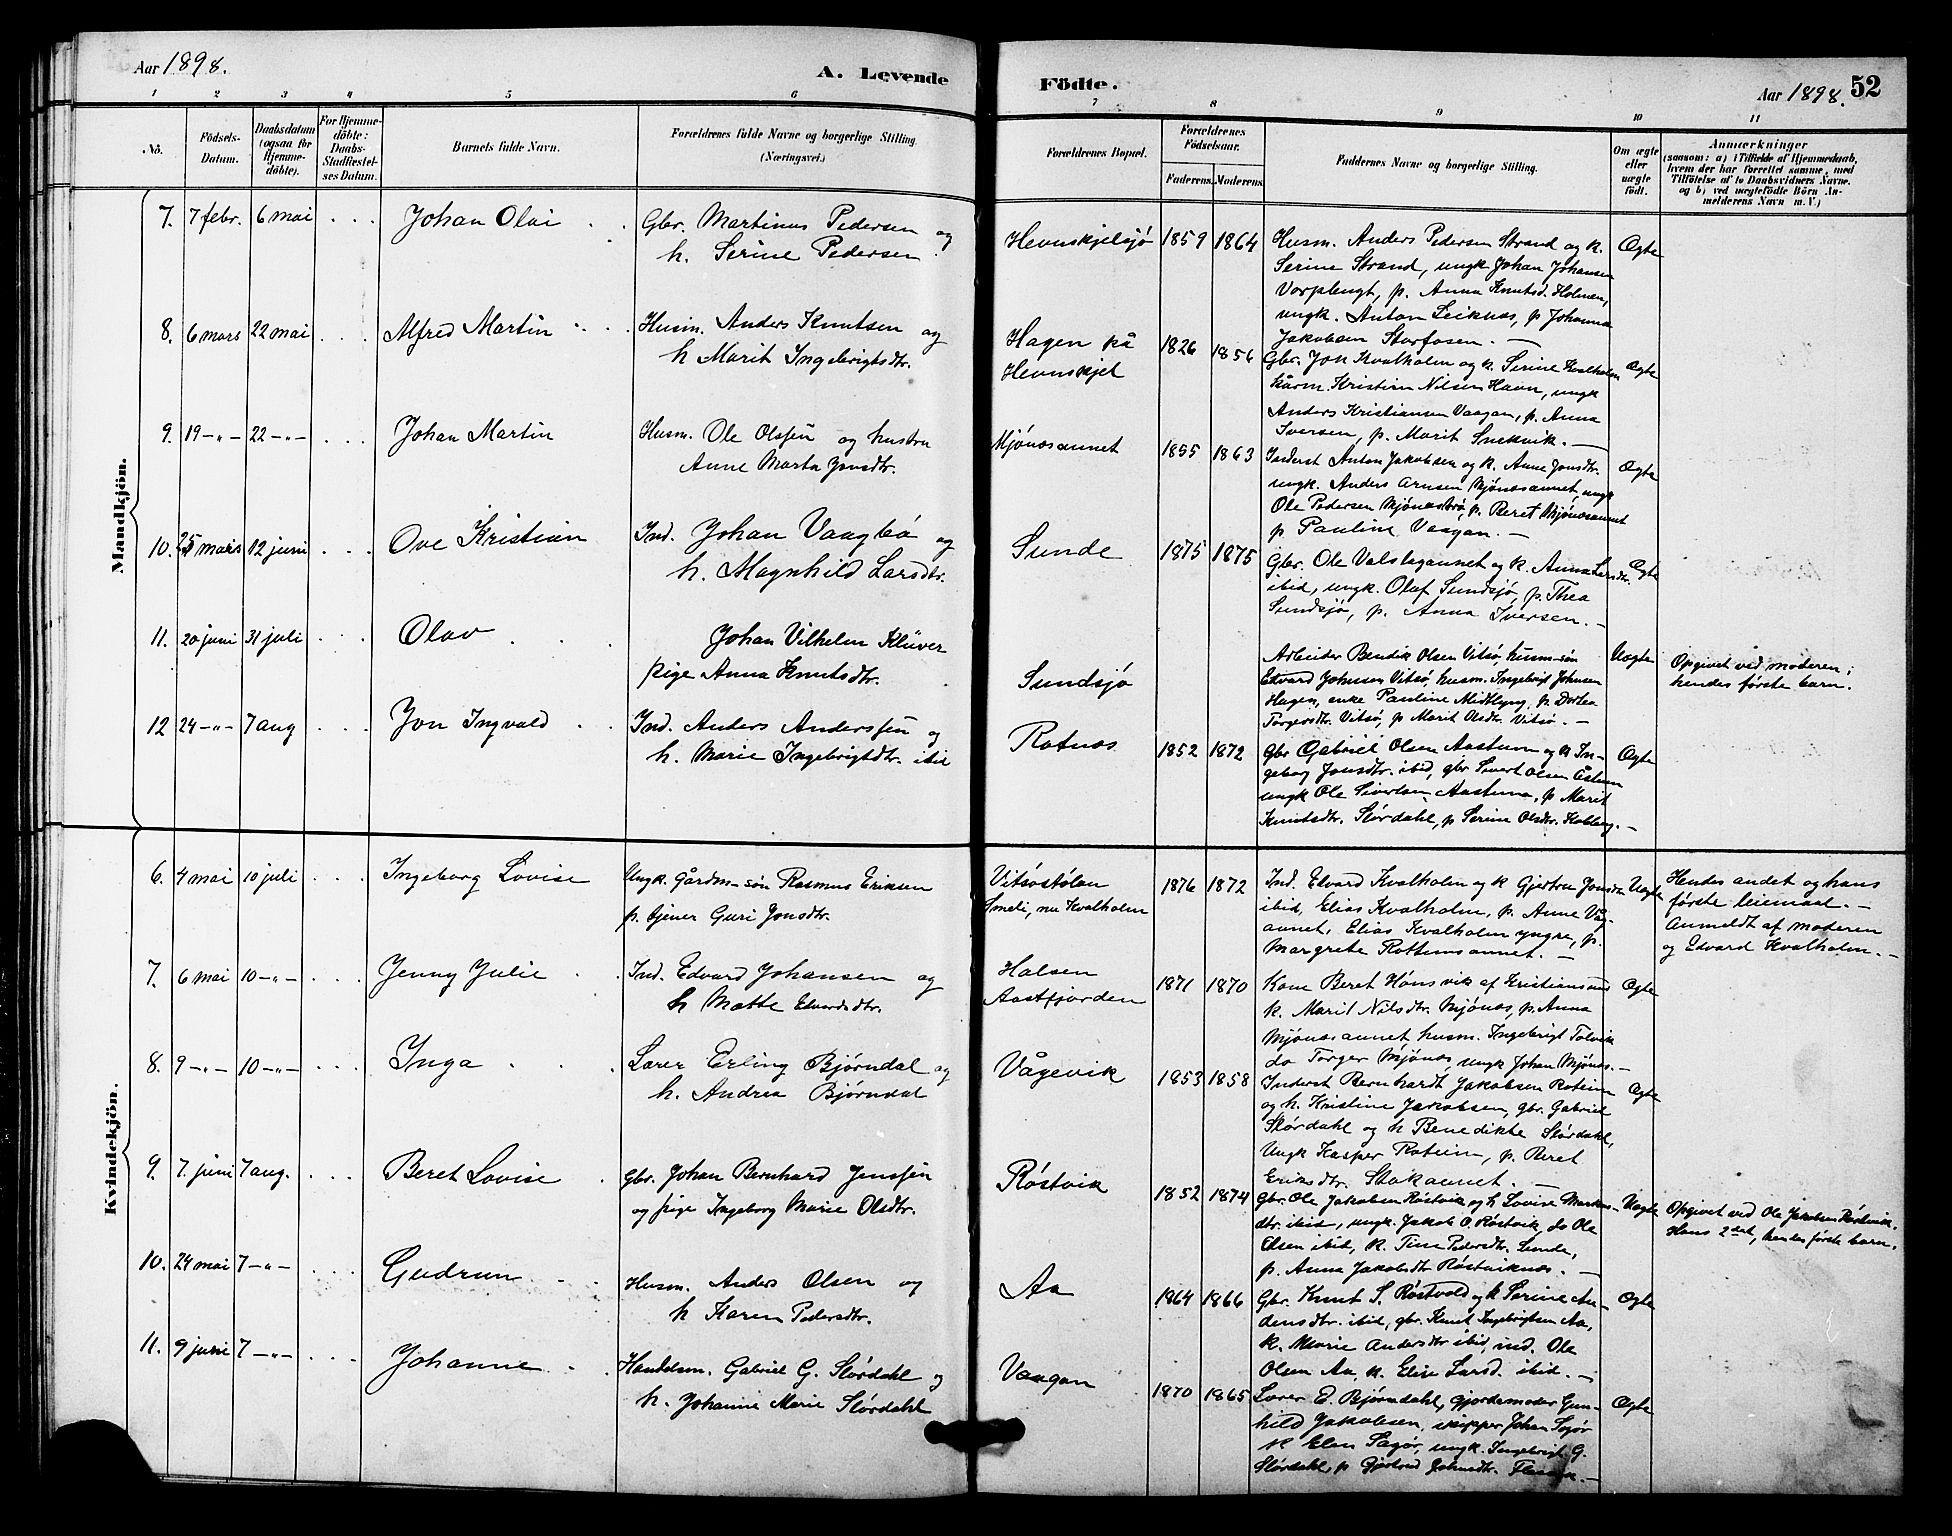 Aar 1898.
A. Levende
Födte.
Aar 1898.
52
1 2 3 4 5 6 7 8 9 10 11
No.
Födsels-
Datum.
Daabsdatum
(ogsaa for
Hjemme-
döbte).
For Hjemme-
döbte:
Daabs-
Stadfæstel-
ses Datum.
Barnets fulde Navn.
Forældrenes fulde Navne og borgerlige Stilling.
(Næringsvei.)
Forældrenes Bopæl.
Forældrenes
Födselsaar.
Faderens. Moderens.
Faddernes Navne og borgerlige Stilling.
Om ægte
eller
uægte
født.
Anmærkninger
(saasom: a) i Tilfælde af Hjemmedaab,
hvem der har forrettet samme, med
Tilföielse af to Daabsvidners Navne,
og b) ved uægtefödte Börn An-
melderens Navn m. V.)
Mandkjön.
7. 7 febr. 6 mai Johan Olai
Gbr. Martinus Pedersen og
h. Serine Pedersen.
Hevnskjelsjø 1859 1864
Husm. Anders Pedersen Strand og k.
Serine Strand, ungk Johan Johansen
p. Anna Knutsd. Holmen,
ungk. Anton Leiknes, p Johanna
Jakobsen Storfosen. —
Ægte
8. 6 mars 22 mai Alfred Martin
Husm. Anders Knutsen og
h Marit Ingebrigtsdtr.
Hagen på
Hevnskjel
1826 1856
Gbr. Jon Kvalholm og k. Serine Kvalholm
kårm. Kristian Nilsen Havn, ungk
Anders Kristiansen Vaagan, p. Anna
Iversen, p. Marit Snekvik. —
Ægte
9. 19 —"— 22 —"— Johan Martin
Husm. Ole Olsen og hustru
Anne Marta Jonsdtr.
Mjónesaunet 1855 1863
Inderst Anton Jakobsen og k. Anne Jonsdtr.
ungk. Anders Arnsen Mjónesaunet, ungk
Ole Pedersen p. Beret Mjónesaunet
p Pauline Vaagan. —
Ægte
10. 25 mars 12 juni Ove Kristian
Ind. Johan Vaagbø og
h. Magnhild Larsdtr.
Sunde 1875 1875
Gbr. Ole Valslagaunet og k. Anna Larsdtr.
ibid, ungk. Olaf Sundsjø, p. Thea
Sundsjø, p. Anna Iversen. —
Ægte
11. 20 juni 31 juli Olav
Johan Vilhelm Klüver
pige Anna Knutsdtr.
Sundsjø
Arbeider Bendik Olsen Vitsø, husm-søn
Edvard Johnsen Vitsø, husm. Ingebrigt Johnsen
Hagen, enke Pauline Midtlyng, p Dortea
Torgersdtr. Vitsø, p Marit Olsdtr. Vitsø. —
Uægte
Opgivet ved moderen;
hendes første barn.
12 24 —"— 7 aug Jon Ingvald
Ind. Anders Anderssen og
h. Marie Ingebrigtdtr. ibid
Rotnes 1852 1872
Gbr Gabriel Olsen Aastum og k In-
geborg Jonsdtr. ibid, gbr Sivert Olsen Åstum
ungk Ole Sivertsen Aastum, p Marit
Knutsdtr. Størdahl, p Serine Olsdtr. Kolberg. —
Ægte
Kvindekjön.
6. 4 mai 10 juli Ingeborg Lovise
Ungk. gårdm-søn Rasmus Eriksen
p. tjener Guri Jonsdtr.
Vitsøstølan
Smeli, nu Kvalholm
1876 1872
Ind. Edvard Kvalholm og k Gjertru Jonsdtr
ibid, Elias Kvalholm, p. Anne Våg-
aunet, Elias Kvalholm yngre, p.
Margrete Rottemsaunet. —
Uægte
Hendes andet og hans
første leiemaal. —
Anmeldt af moderen
og Edvard Kvalholm. —
7. 6 mai 10 —"— Jenny Julie
Ind. Edvard Johansen og
h Mætte Edvardsdtr.
Halsen
Aastfjorden
1871 1870
Kone Beret Hónsvik af Kristiansund
k. Marit Nilsdtr. Mjónes, p. Anna
Mjónesaunet husm. Ingebrigt Tolvik
do Torger Mjónes, ungk Johan Mjónes. —
Ægte
8. 9 —"— 10 —"— Inga
Lærer Erling Bjørndal og
h. Andrea Bjørndal
Vågevik 1853 1858
Inderst Bernhardt Jakobsen Roteim
og h. Kristine Jakobsen, gbr. Gabriel
Størdahl og h Benedikte Størdahl,
Ungk Kasper Roteim, p. Beret
Eriksdtr. Stokaunet. —
Ægte
9. 7. juni 7 aug. Beret Lovise
Gbr. Johan Bernhard Jenssen
og pige Ingeborg Marie Olsdtr.
Røstvik 1852 1874
Gbr. Ole Jakobsen Røstvik og h Lovise Markus-
dtr. ibid, ungk. Jakob O. Røstvik, do Ole
Olsen ibid, k. Tine Pedersdtr. Sunde,
p. Anna Jakobsdtr Røstviknes. —
Uægte
Opgivet ved Ole Jakobsen Røstvik.
Hans 2det, hendes første barn.
10. 24 mai 7 —"— Gudrun
Husm. Anders Olsen og
h Karen Pedersdtr.
Aa 1864 1866
Gbr. Knut S. Røstvold og k Serine An-
densdtr. ibid, gbr. Knut Ingebrigtsen Aa,
k. Marie Andersdtr ibid, ind. Ole
Olsen Aa, k. Elise Larsd. ibid. —
Ægte
11. 9 juni 7 —"— Johanne
Handelsm. Gabriel G. Størdahl og
h. Johanne Marie Størdahl
Vaagan 1870 1865
Lærer E. Bjørndahl, gjordemoder Gun-
hild Jakobsen, skipper Johan Sagør
k Elen Sagør, ungk. Ingebrigt G.
Størdahl, p Gjertrud Johnsdtr.
Ægte